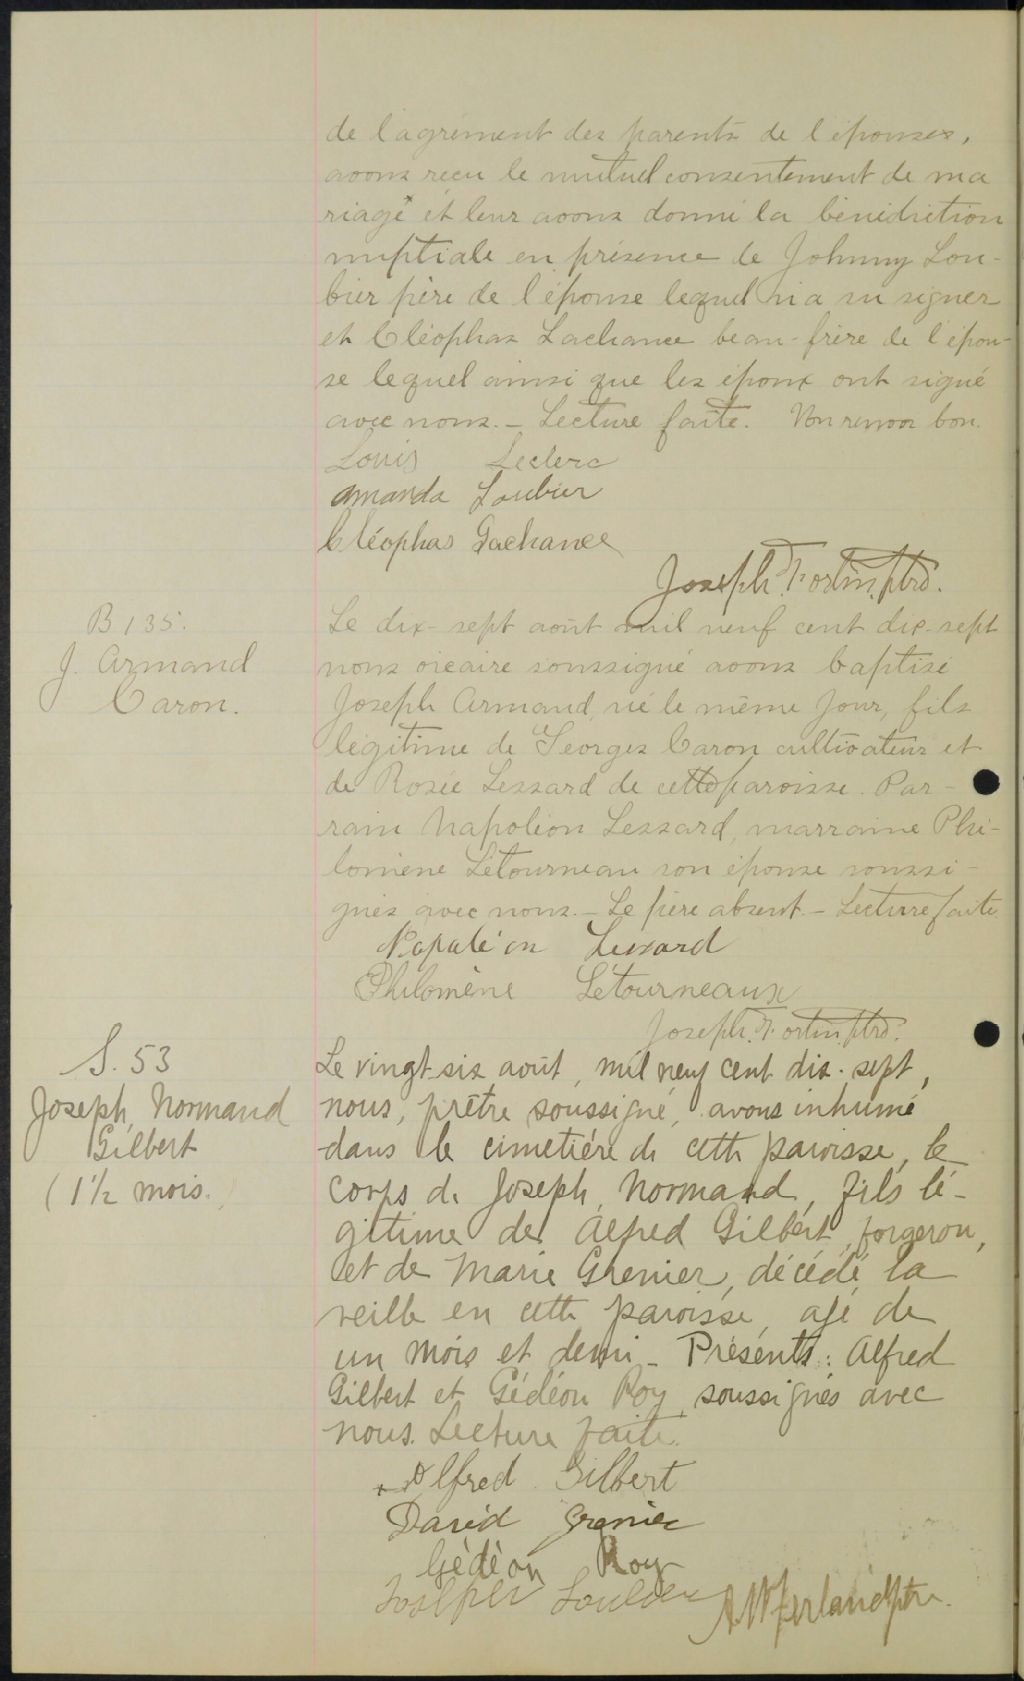 de l'agrément des parents de l'épouses,
avons reçu le mutuel consentement de ma
riage et leur avons donné la bénédiction
nuptiale en présence de Johnny Lou-
bier père de l'épouse lequel n'a su signer
et Cléophas Lachance beau-frère de l'épou-
se lequel ainsi que les époux ont signé
avec nous. – Lecture faite. bon.
Louis Leclerc
Amanda Loubier
Cléophas Lachance
Joseph Fortin, ptre.
B 135.
J. Armand
Caron.
Le dix-sept août mil neuf cent dix-sept
nous vicaire soussigné avons baptisé
Joseph Armand, né le même jour, fils
légitime de Georges Caron cultivateur et
de Rosée Lessard de cette paroisse. Par-
rain Napoléon Lessard, marraine Phi-
lomène Létourneau son épouse soussi-
gnés avec nous. – Le père absent. – Lecture faite
Napoléon Lessard
Philomène Létourneaux
Joseph Fortin ptre.
S. 53
Joseph, Normand
Gilbert
(1½ mois.)
Le vingt-six août, mil neuf cent dix-sept,
nous, prêtre soussigné, avons inhumé
dans le cimetière de cette paroisse, le
corps de Joseph, Normand, fils lé-
gitime de Alfred Gilbert, forgeron,
et de Marie Grenier, décédé la
veille en cette paroisse, agé de
un mois et demi – Présents: Alfred
Gilbert et Gédéon Roy, soussignés avec
nous. Lecture faite.
Alfred Gilbert
David Grenier
Gédéon Roy
Joseph